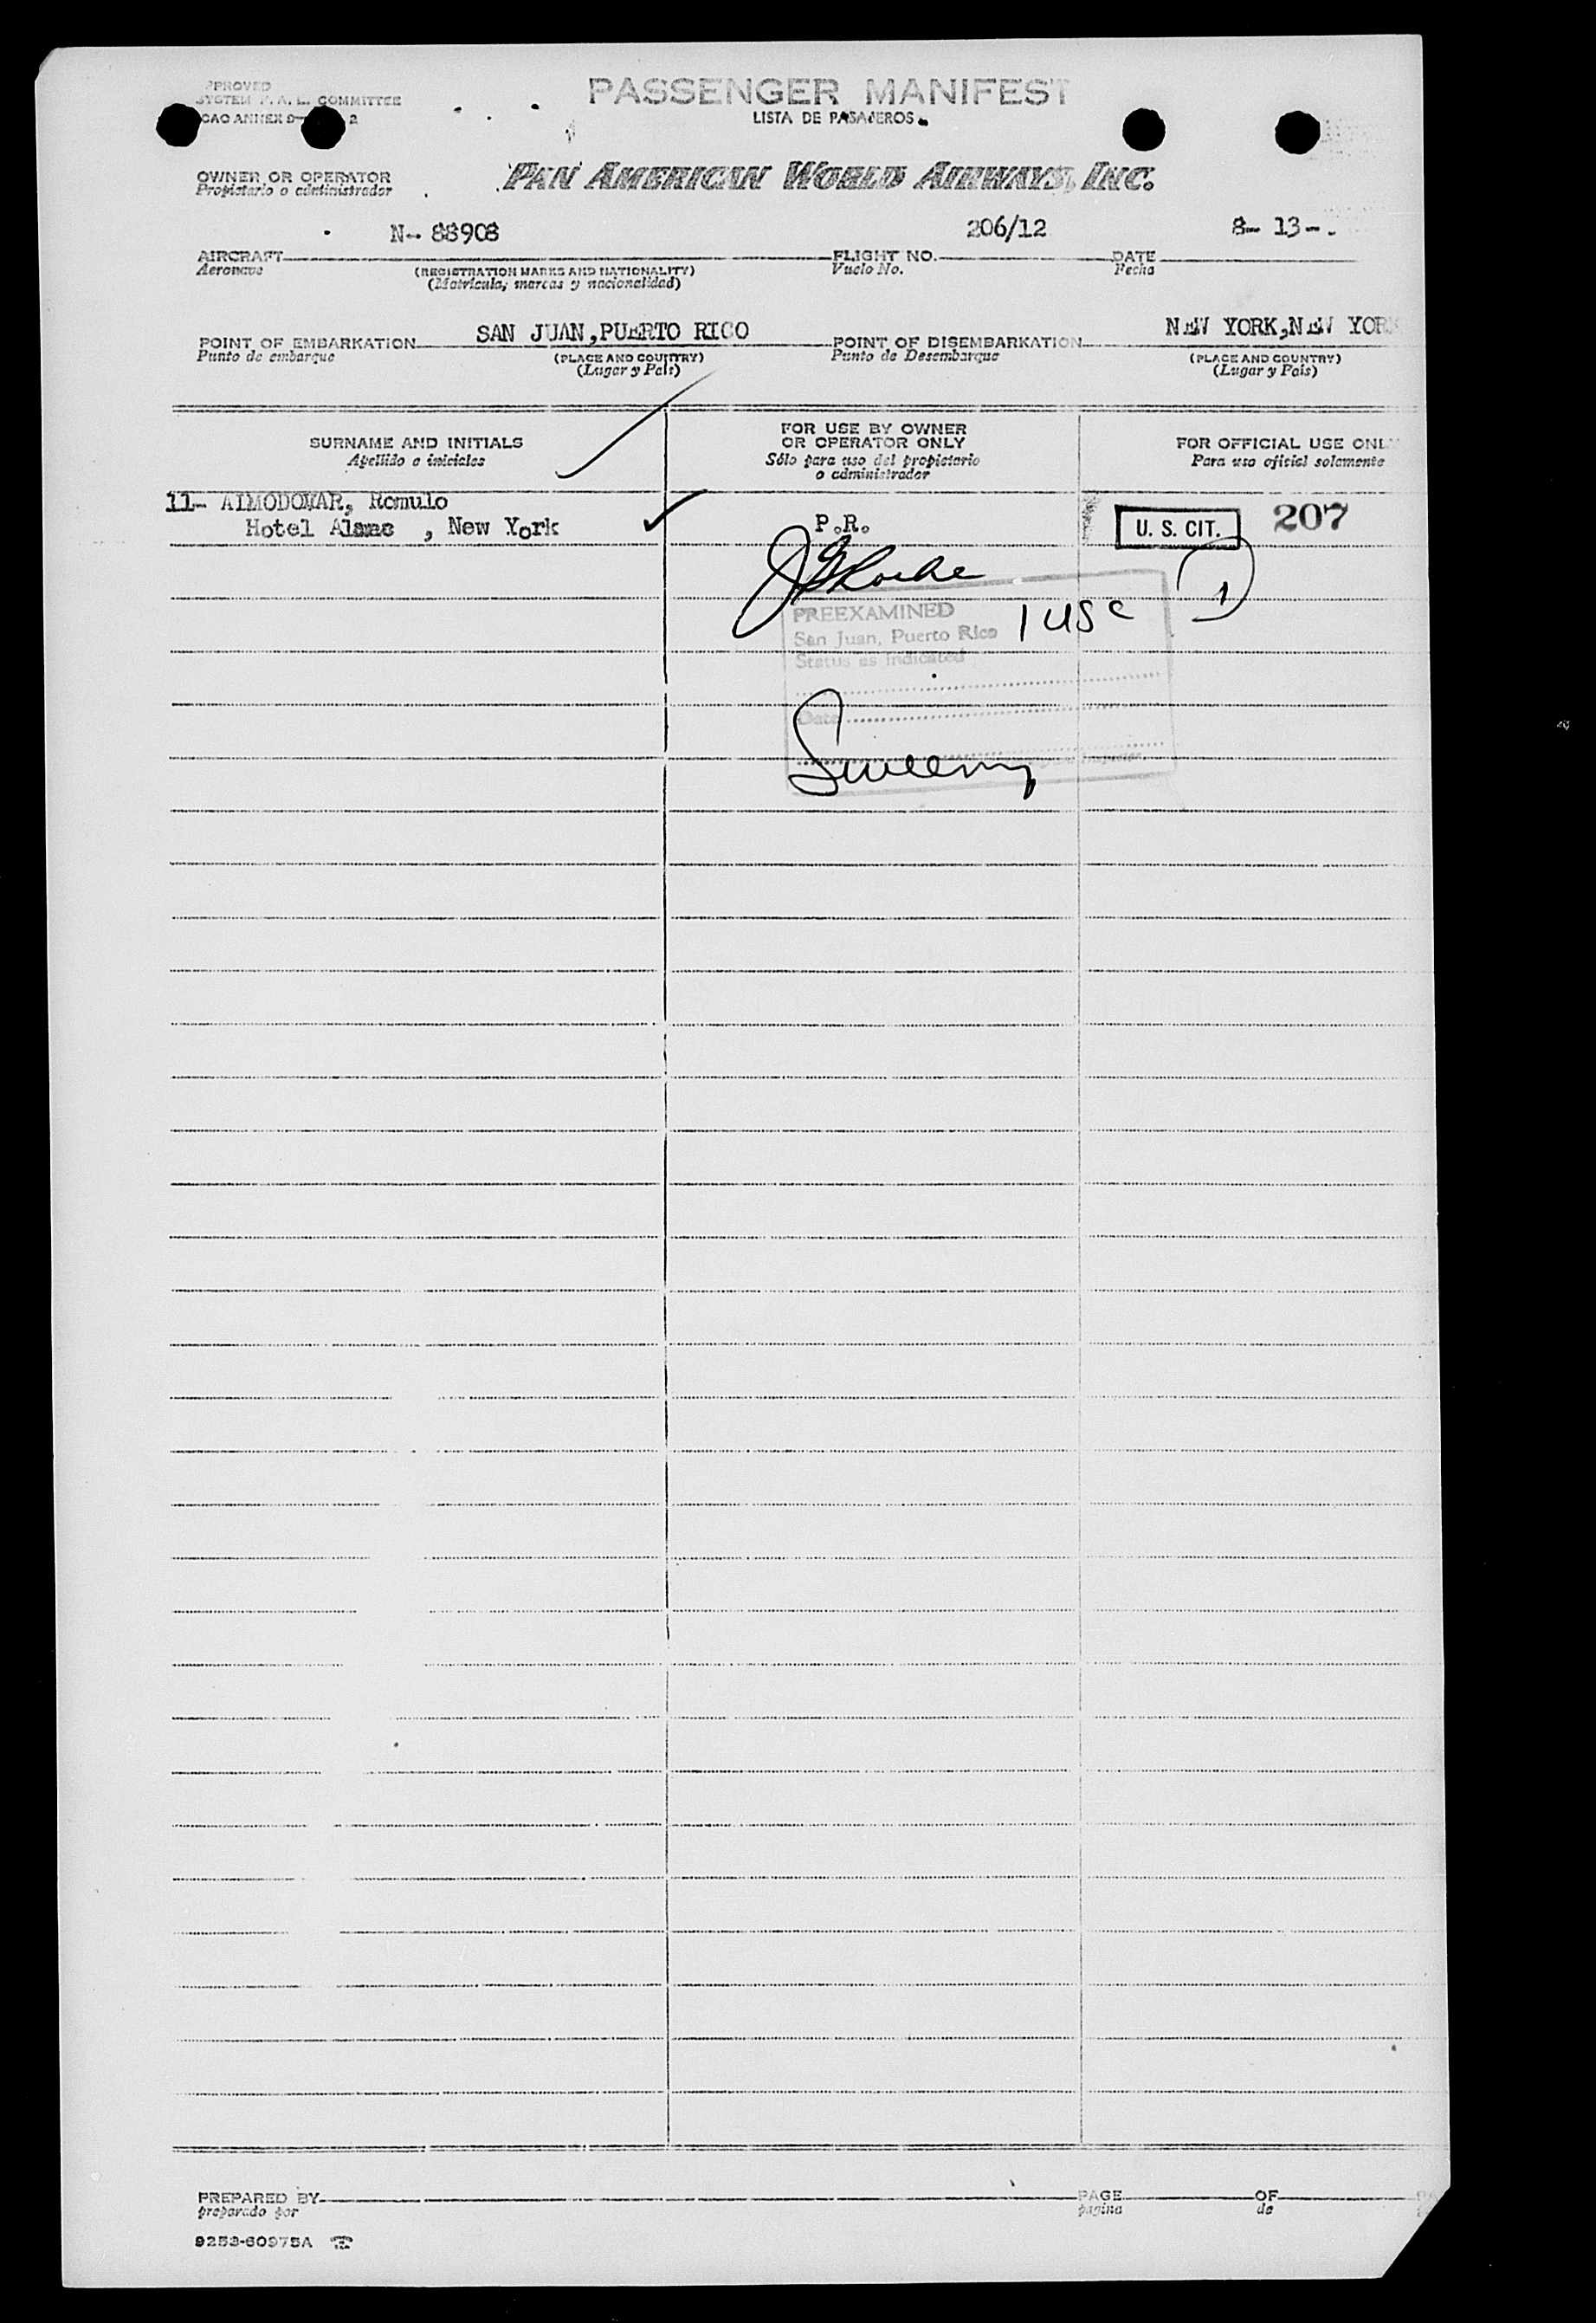 PPROVED
SYSTEM F. A. L. COMMITTEE
CAO ANNEX 9- 2
PASSENGER MANIFEST
LISTA DE PASAJEROS
OWNER OR OPERATOR
Propietario o administrador
PAN AMERICAN WORLD AIRWAYS, INC.
N- 88908 206/12 8- 13-
AIRCRAFT FLIGHT NO. DATE
Aeronave (REGISTRATION MARKS AND NATIONALITY) Vuelo No. Fecha
(Matrícula, marcas y nacionalidad)
SAN JUAN,PUERTO RICO NEW YORK,NEW YOR
POINT OF EMBARKATION POINT OF DISEMBARKATION
Punto de embarque (PLACE AND COUNTRY) Punto de Desembarque (PLACE AND COUNTRY)
(Lugar y País) (Lugar y País)
SURNAME AND INITIALS
Apellido e iniciales
FOR USE BY OWNER
OR OPERATOR ONLY
Sólo para uso del propietario
o administrador
FOR OFFICIAL USE ONL
Para uso oficial solamente
11- ALMODOVAR, Romulo
Hotel Alamac , New York P.R. U. S. CIT. 207
PREEXAMINED 1 USC 1
San Juan, Puerto Rico
Status as indicated
Date
Sweeny
PREPARED BY PAGE OF
preparado por pagina de
9253-60975A